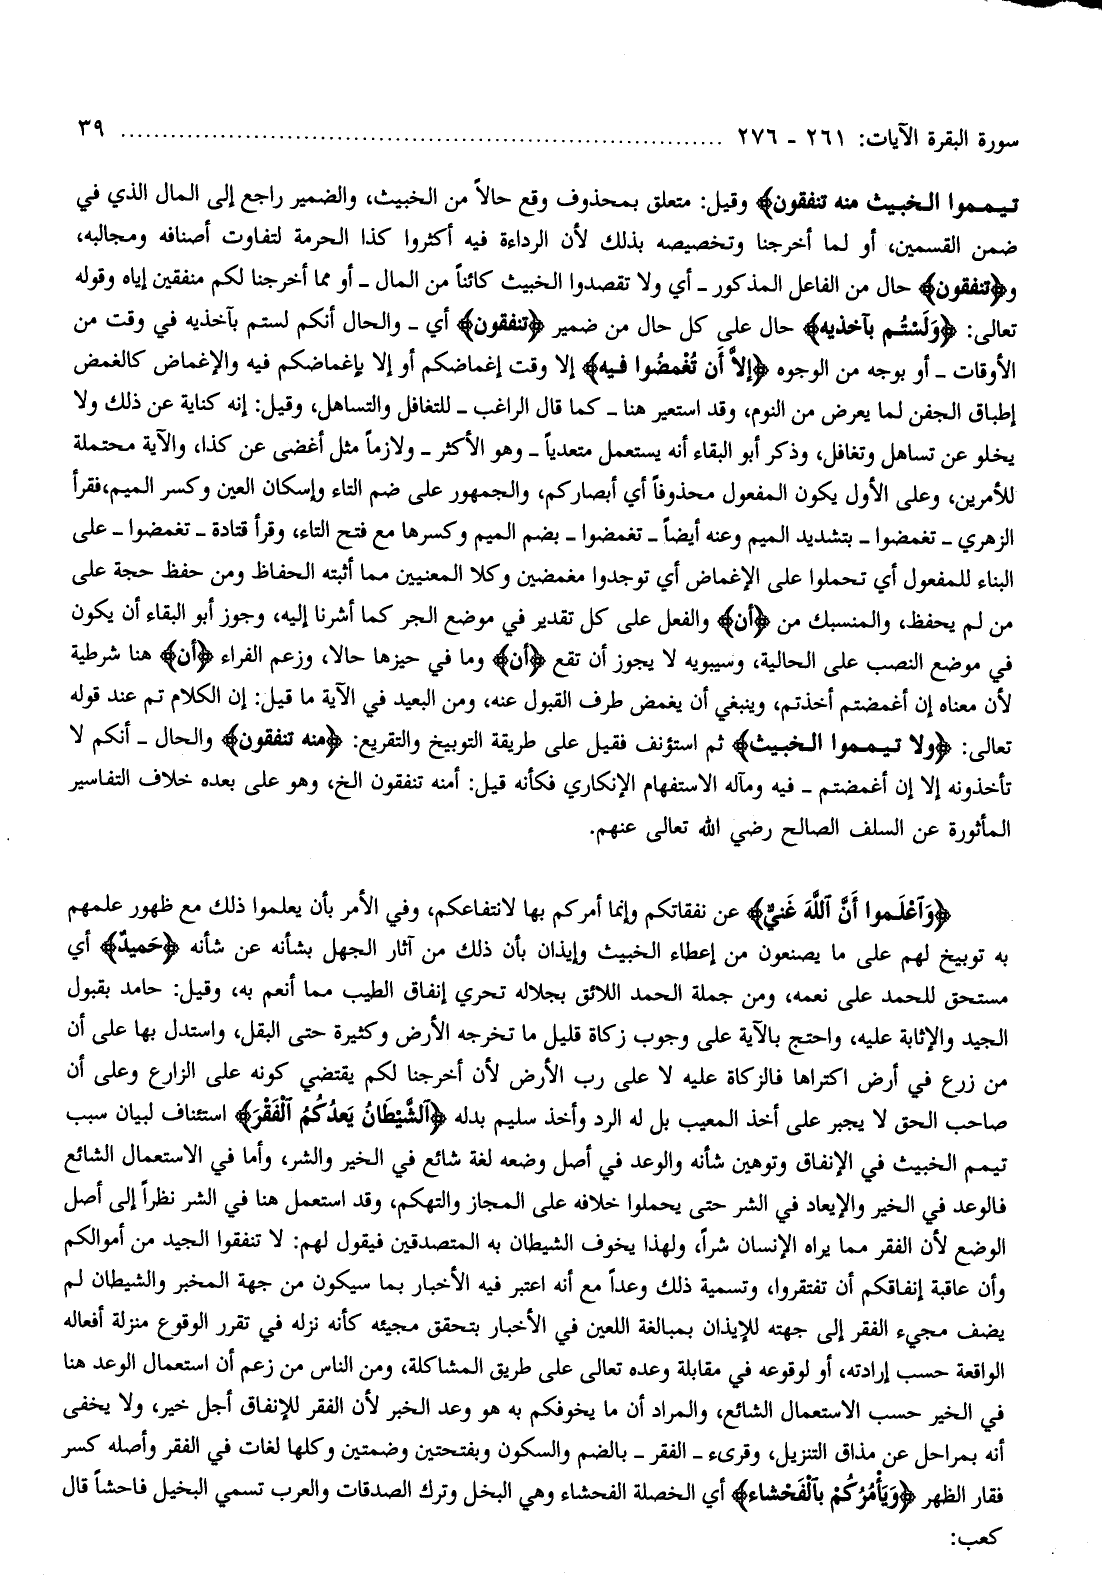 سورة البقرة الآيات: ٢٦١ ـ ٢٧٦ ........................................................................ ٣٩
تيمموا الخبيث منه تنفقون﴾ وقيل: متعلق بمحذوف وقع حالاً من الخبيث، والضمير راجع إلى المال الذي في
ضمن القسمين، أو لما أخرجنا وتخصيصه بذلك لأن الرداءة فيه أكثروا كذا الحرمة لتفاوت أصنافه ومجالبه،
و﴿تنفقون﴾ حال من الفاعل المذكور ـ أي ولا تقصدوا الخبيث كائناً من المال ـ أو مما أخرجنا لكم منفقين إياه وقوله
تعالى: ﴿وَلَسْتُم بآخذيه﴾ حال على كل حال من ضمير ﴿تنفقون﴾ أي ـ والحال أنكم لستم بآخذيه في وقت من
الأوقات ـ أو بوجه من الوجوه ﴿إلاَّ أَن تُغْمضُوا فيه﴾ إلا وقت إغماضكم أو إلا بإغماضكم فيه والإغماض كالغمض
إطباق الجفن لما يعرض من النوم، وقد استعير هنا ـ كما قال الراغب ـ للتغافل والتساهل، وقيل: إنه كناية عن ذلك ولا
يخلو عن تساهل وتغافل، وذكر أبو البقاء أنه يستعمل متعدياً ـ وهو الأكثر ـ ولازماً مثل أغضى عن كذا، والآية محتملة
للأمرين، وعلى الأول يكون المفعول محذوفاً أي أبصاركم، والجمهور على ضم التاء وإسكان الغين وكسر الميم،فقرأ
الزهري ـ تغمضوا ـ بتشديد الميم وعنه أيضاً ـ تغمضوا ـ بضم الميم وكسرها مع فتح التاء، وقرأ قتادة ـ تغمضوا ـ على
البناء للمفعول أي تحملوا على الإغماض أي توجدوا مغمضين وكلا المعنيين مما أثبته الحفاظ ومن حفظ حجة على
من لم يحفظ، والمنسبك من ﴿أن﴾ والفعل على كل تقدير في موضع الجر كما أشرنا إليه، وجوز أبو البقاء أن يكون
في موضع النصب على الحالية، وسيبويه لا يجوز أن تقع ﴿أن﴾ وما في حيزها حالا، وزعم الفراء ﴿أن﴾ هنا شرطية
لأن معناه إن أغمضتم أخذتم، وينبغي أن يغمض طرف القبول عنه، ومن البعيد في الآية ما قيل: إن الكلام تم عند قوله
تعالى: ﴿ولا تيمموا الخبيث﴾ ثم استؤنف فقيل على طريقة التوبيخ والتقريع: ﴿منه تنفقون﴾ والحال ـ أنكم لا
تأخذونه إلا إن أغمضتم ـ فيه ومآله الاستفهام الإنكاري فكأنه قيل: أمنه تنفقون الخ، وهو على بعده خلاف التفاسير
المأثورة عن السلف الصالح رضي الله تعالى عنهم.
﴿وَٱعْلَموا أَنَّ ٱللَّهَ غَنيٌّ﴾ عن نفقاتكم وإنما أمركم بها لانتفاعكم، وفي الأمر بأن يعلموا ذلك مع ظهور علمهم
به توبيخ لهم على ما يصنعون من إعطاء الخبيث وإيذان بأن ذلك من آثار الجهل بشأنه عن شأنه ﴿حَميدٌ﴾ أي
مستحق للحمد على نعمه، ومن جملة الحمد اللائق بجلاله تحري إنفاق الطيب مما أنعم به، وقيل: حامد بقبول
الجيد والإثابة عليه، واحتج بالآية على وجوب زكاة قليل ما تخرجه الأرض وكثيرة حتى البقل، واستدل بها على أن
من زرع في أرض اكتراها فالزكاة عليه لا على رب الأرض لأن أخرجنا لكم يقتضي كونه على الزارع وعلى أن
صاحب الحق لا يجبر على أخذ المعيب بل له الرد وأخذ سليم بدله ﴿ٱلشَّيْطَانُ يَعدُكُمُ ٱلْفَقْرَ﴾ استئناف لبيان سبب
تيمم الخبيث في الإنفاق وتوهين شأنه والوعد في أصل وضعه لغة شائع في الخير والشر، وأما في الاستعمال الشائع
فالوعد في الخير والإيعاد في الشر حتى يحملوا خلافه على المجاز والتهكم، وقد استعمل هنا في الشر نظراً إلى أصل
الوضع لأن الفقر مما يراه الإنسان شراً، ولهذا يخوف الشيطان به المتصدقين فيقول لهم: لا تنفقوا الجيد من أموالكم
وأن عاقبة إنفاقكم أن تفتقروا، وتسمية ذلك وعداً مع أنه اعتبر فيه الأخبار بما سيكون من جهة المخبر والشيطان لم
يضف مجيء الفقر إلى جهته للإيذان بمبالغة اللعين في الأخبار بتحقق مجيئه كأنه نزله في تقرر الوقوع منزلة أفعاله
الواقعة حسب إرادته، أو لوقوعه في مقابلة وعده تعالى على طريق المشاكلة، ومن الناس من زعم أن استعمال الوعد هنا
في الخير حسب الاستعمال الشائع، والمراد أن ما يخوفكم به هو وعد الخير لأن الفقر للإنفاق أجل خير، ولا يخفى
أنه بمراحل عن مذاق التنزيل، وقرىء ـ الفقر ـ بالضم والسكون وبفتحتين وضمتين وكلها لغات في الفقر وأصله كسر
فقار الظهر ﴿وَيَأْمُرُكُمْ بٱلْفَحْشاء﴾ أي الخصلة الفحشاء وهي البخل وترك الصدقات والعرب تسمي البخيل فاحشاً قال
كعب: